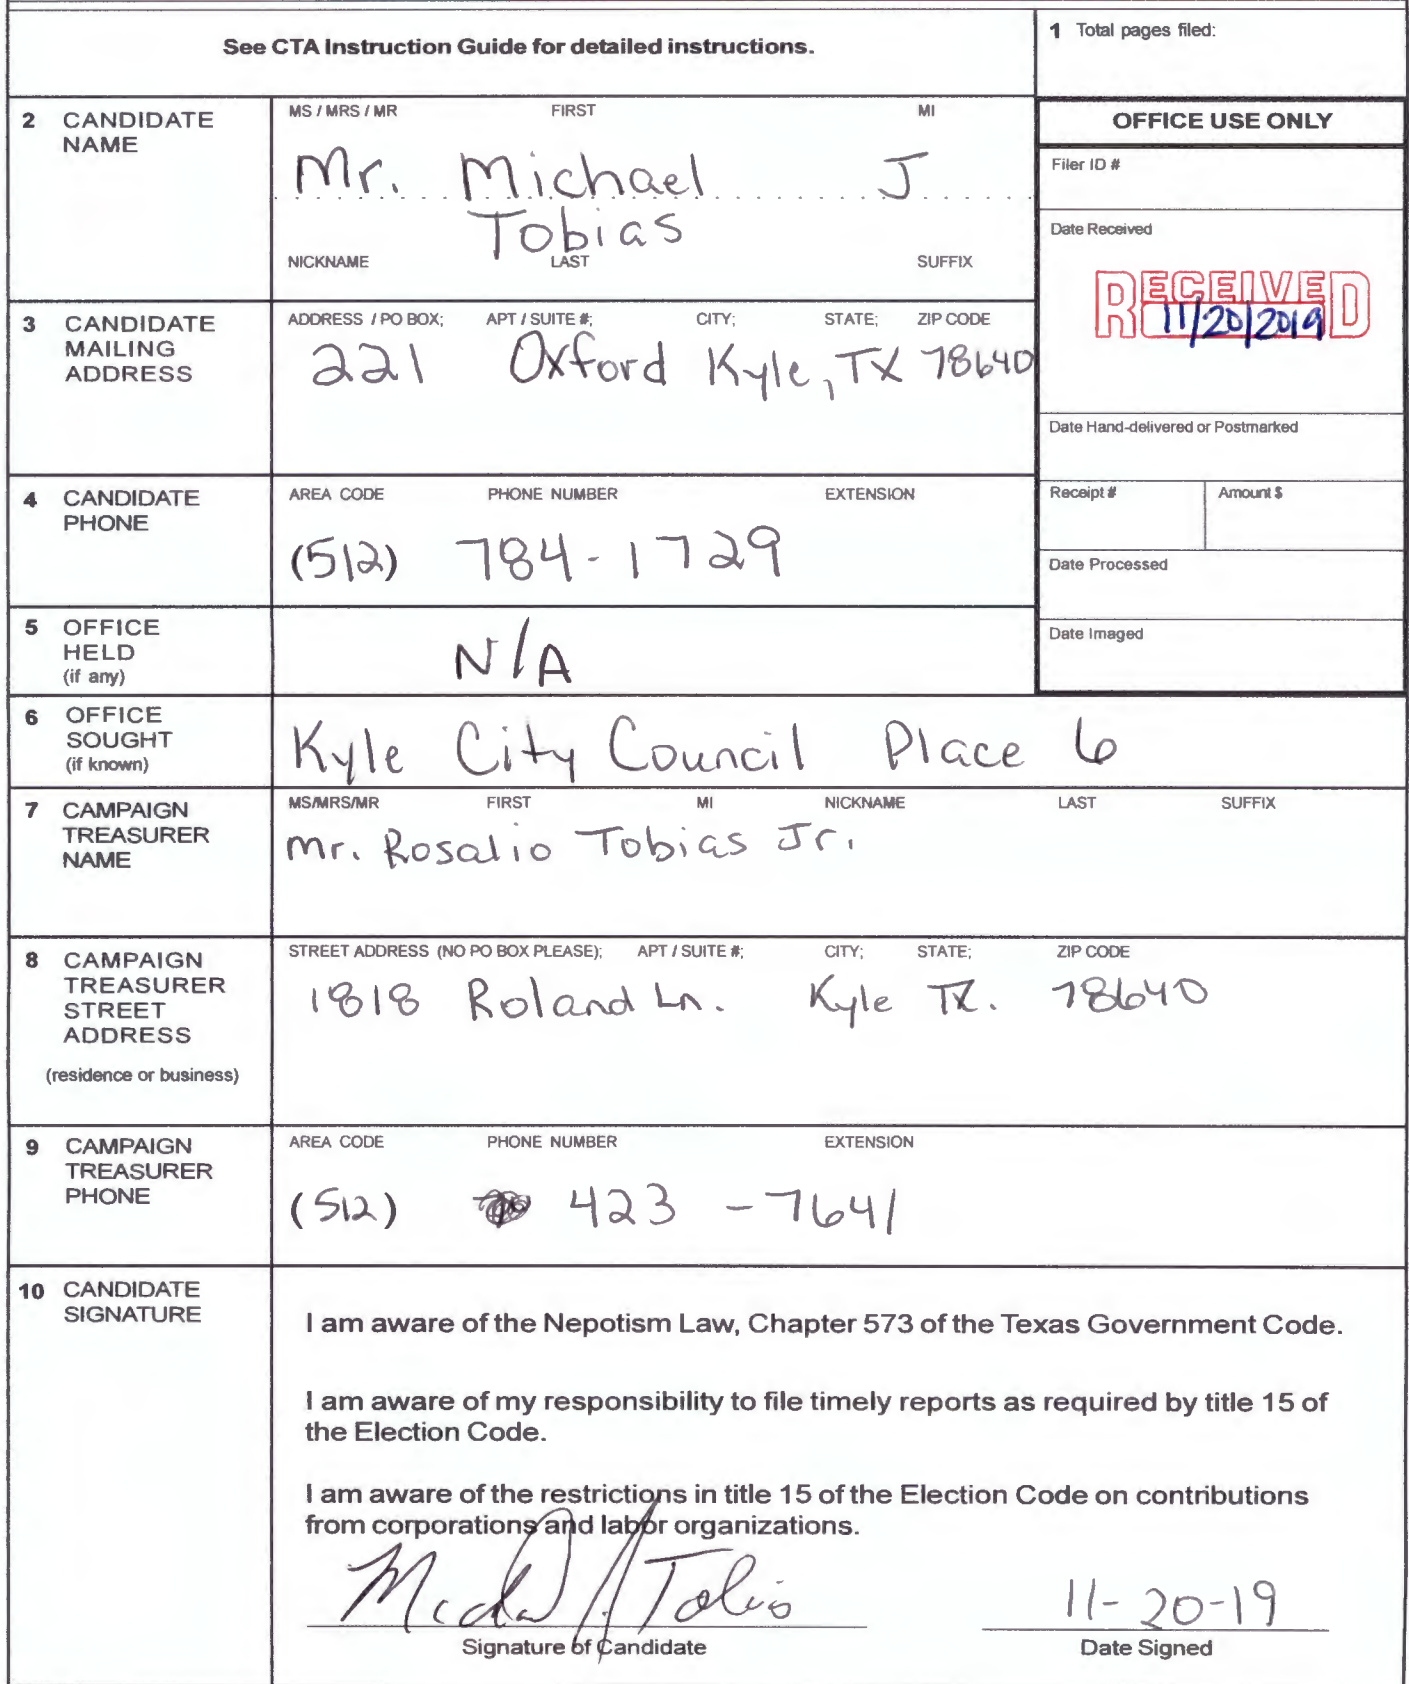 See CTA Instruction Guide for detailed instructions.
1 Total pages filed:
2 CANDIDATE NAME
MS / MRS / MR FIRST MI
Mr. Michael J
Tobias
NICKNAME LAST SUFFIX
OFFICE USE ONLY
Filer ID #
Date Received
RECEIVED
11/20/2019
Date Hand-delivered or Postmarked
Receipt # Amount $
Date Processed
Date Imaged
3 CANDIDATE MAILING ADDRESS
ADDRESS / PO BOX; APT / SUITE #; CITY; STATE; ZIP CODE
221 Oxford Kyle, TX 78640
4 CANDIDATE PHONE
AREA CODE PHONE NUMBER EXTENSION
(512) 784-1729
5 OFFICE HELD (if any)
N/A
6 OFFICE SOUGHT (if known)
Kyle City Council Place 6
7 CAMPAIGN TREASURER NAME
MS/MRS/MR FIRST MI NICKNAME LAST SUFFIX
Mr. Rosalio Tobias Jr.
8 CAMPAIGN TREASURER STREET ADDRESS
(residence or business)
STREET ADDRESS (NO PO BOX PLEASE); APT / SUITE #; CITY; STATE; ZIP CODE
1818 Roland Ln. Kyle TX. 78640
9 CAMPAIGN TREASURER PHONE
AREA CODE PHONE NUMBER EXTENSION
(512) 423 - 7641
10 CANDIDATE SIGNATURE
I am aware of the Nepotism Law, Chapter 573 of the Texas Government Code.
I am aware of my responsibility to file timely reports as required by title 15 of
the Election Code.
I am aware of the restrictions in title 15 of the Election Code on contributions
from corporations and labor organizations.
Michael J. Tobias
11-20-19
Signature of Candidate Date Signed